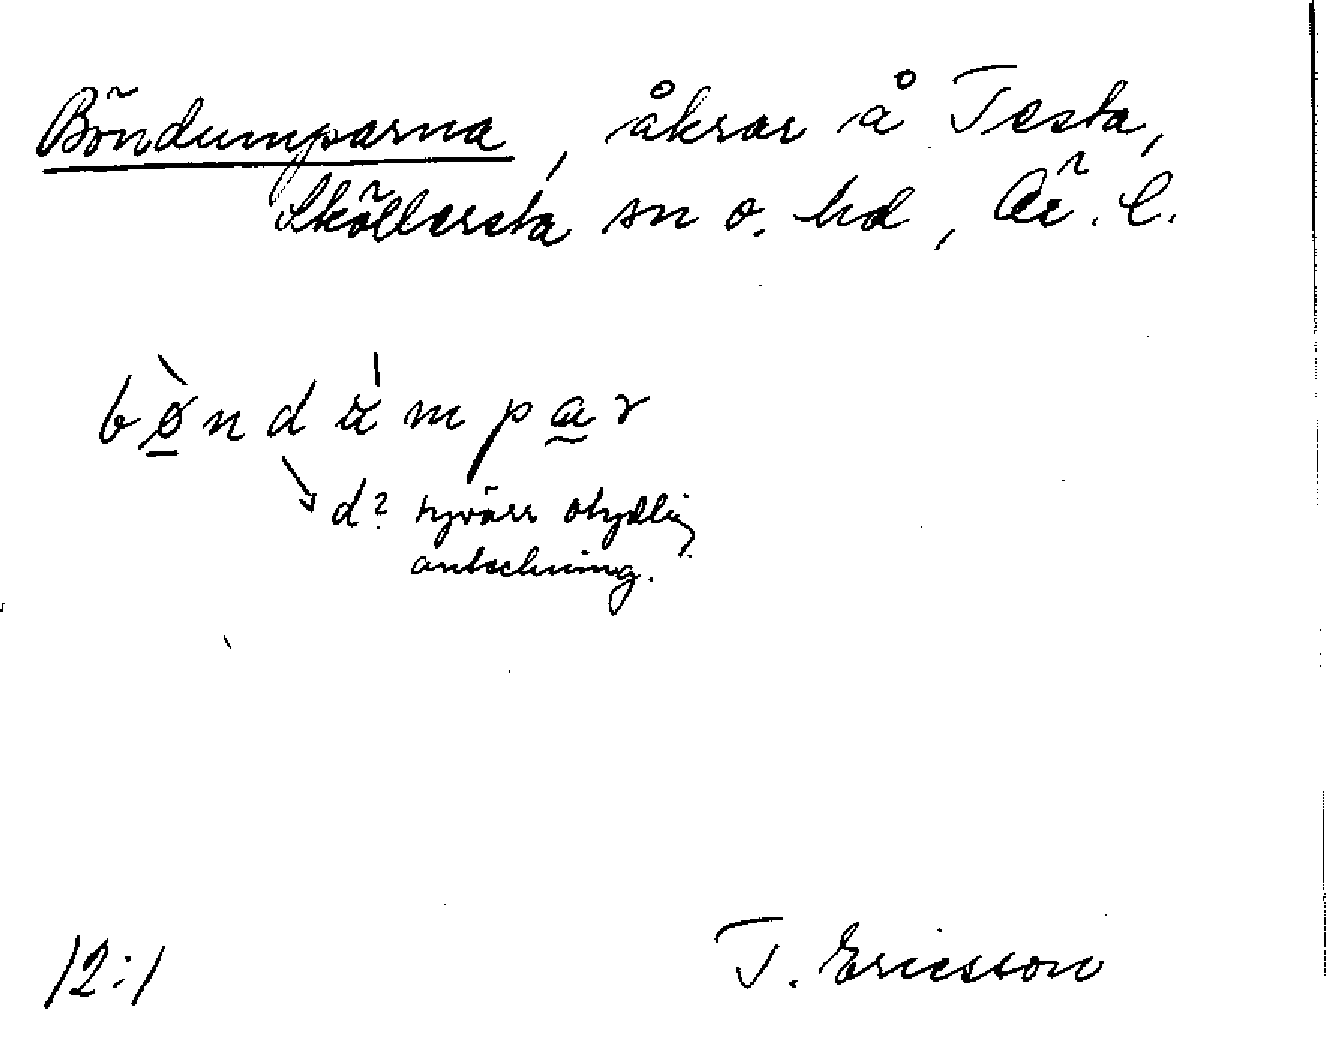 Böndumparna, åkrar å Testa,
Sköllersta sn o. hd, Ör. l.
bøndumpar
d? tyvärr otydlig
anteckning.
12:1 T. Ericsson